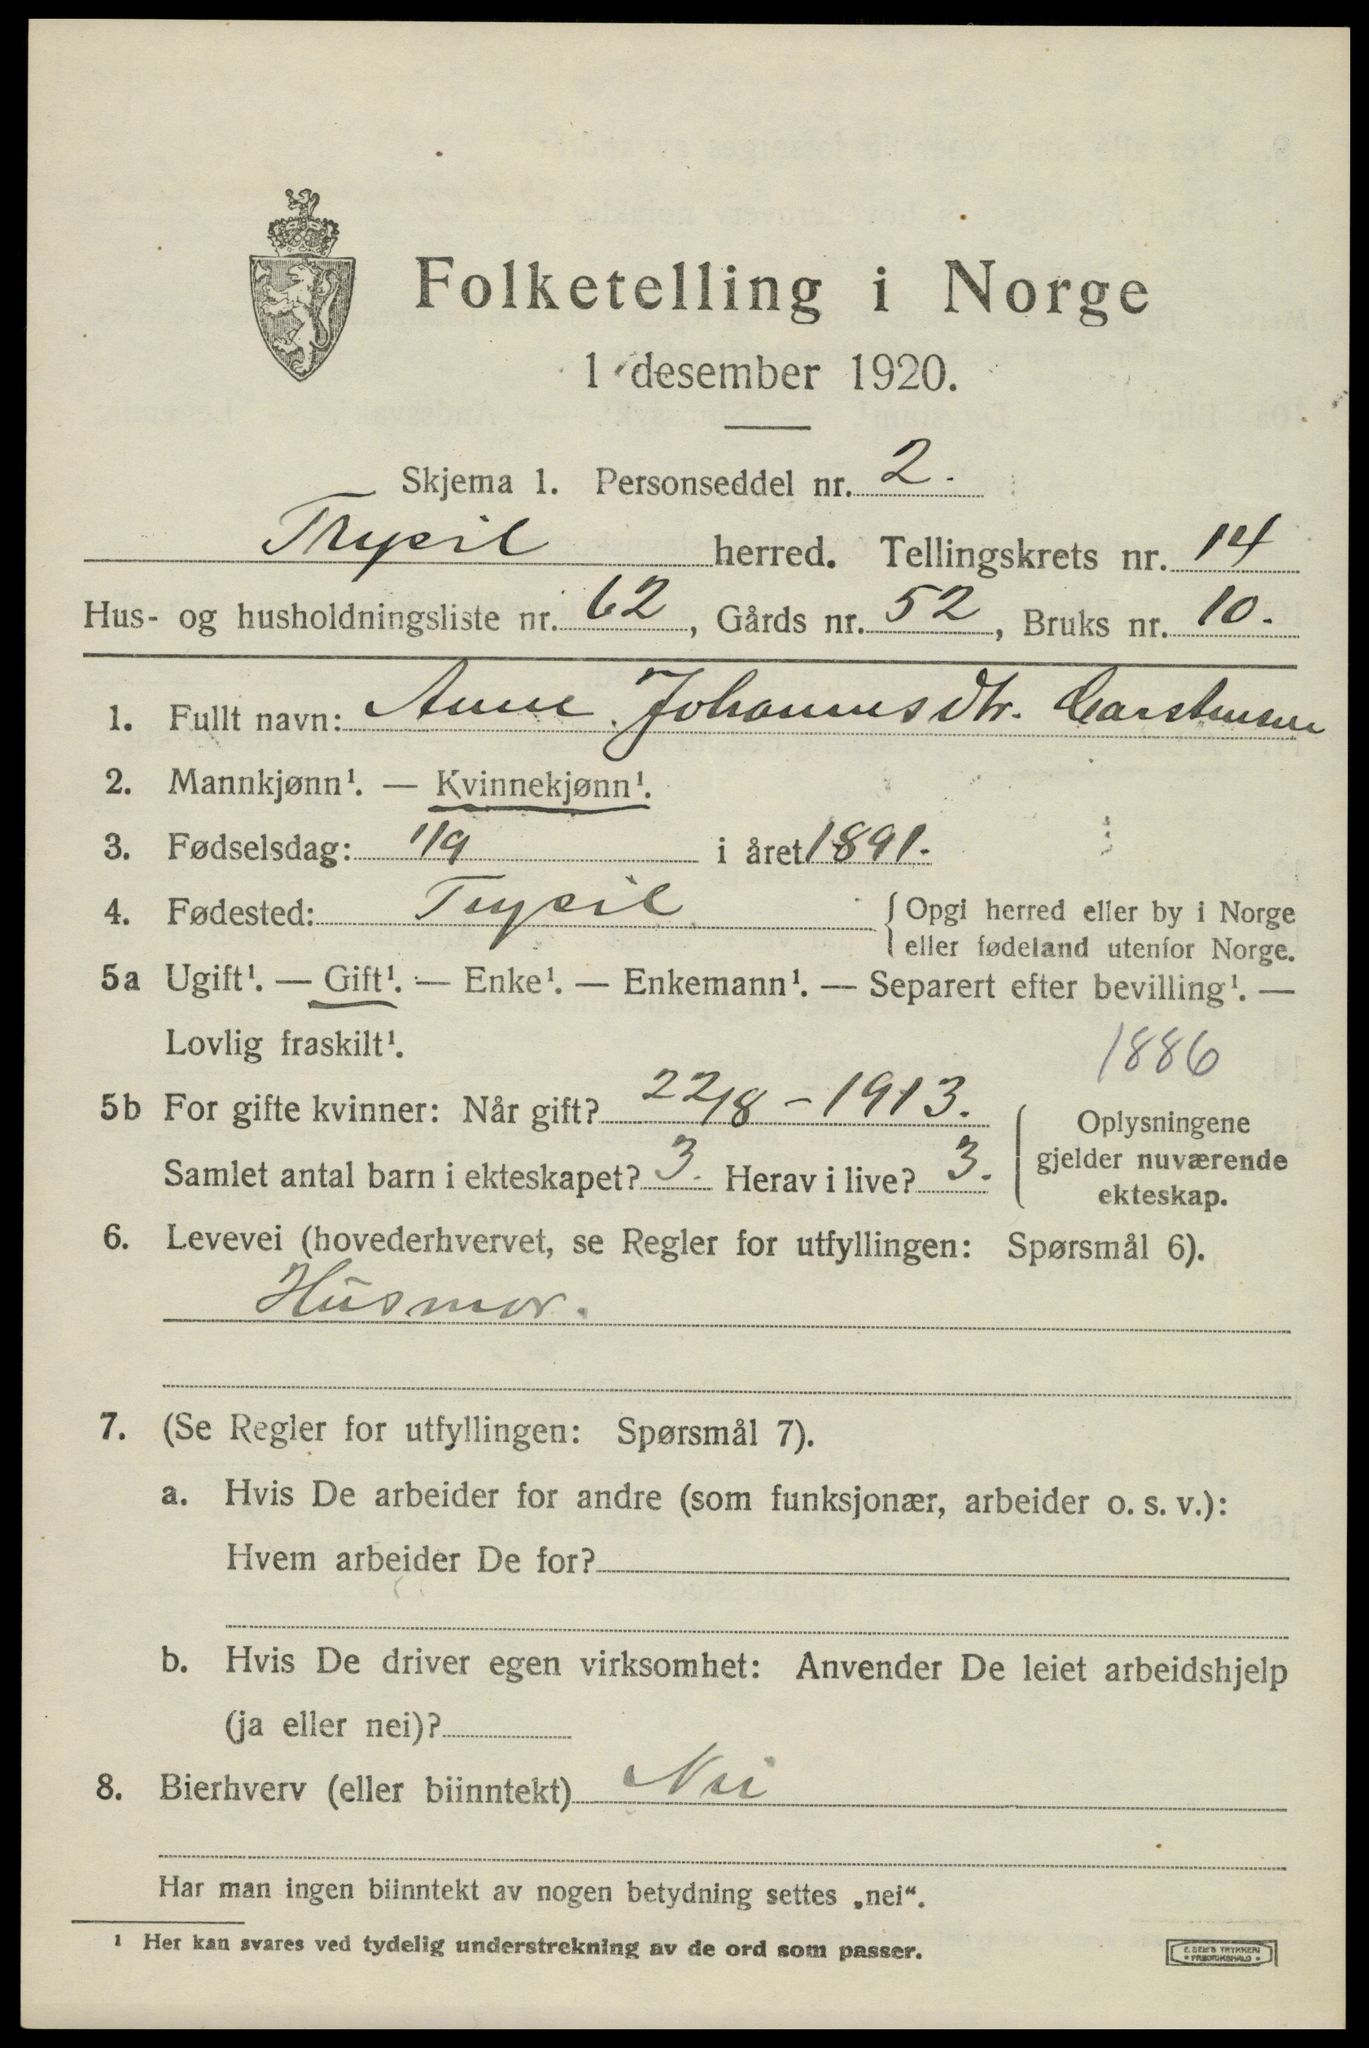 Folketelling i Norge
1 desember 1920.
Skjema 1. Personseddel nr. 2.
Trysil herred. Tellingskrets nr. 14
Hus- og husholdningsliste nr. 62, Gårds nr. 52, Bruks nr. 10.
1. Fullt navn: Anne Johannesdtr. Carstensen
2. Mannkjønn¹. — Kvinnekjønn¹.
3. Fødselsdag: 1/9 i året 1891.
4. Fødested: Trysil { Opgi herred eller by i Norge
eller fødeland utenfor Norge.
5a Ugift¹. — Gift¹. — Enke¹. — Enkemann¹. — Separert efter bevilling¹. —
Lovlig fraskilt¹.
1886
5b For gifte kvinner: Når gift? 22/8 - 1913.
Samlet antal barn i ekteskapet? 3. Herav i live? 3.
Oplysningene
gjelder nuværende
ekteskap.
6. Levevei (hovederhvervet, se Regler for utfyllingen: Spørsmål 6).
Husmor.
7. (Se Regler for utfyllingen: Spørsmål 7).
a. Hvis De arbeider for andre (som funksjonær, arbeider o. s. v.):
Hvem arbeider De for?
b. Hvis De driver egen virksomhet: Anvender De leiet arbeidshjelp
(ja eller nei)?
8. Bierhverv (eller biinntekt) Nei
Har man ingen biinntekt av nogen betydning settes „nei“.
¹ Her kan svares ved tydelig understrekning av de ord som passer.
E. SEM'S TRYKKERI
• FREDRIKSHALD •